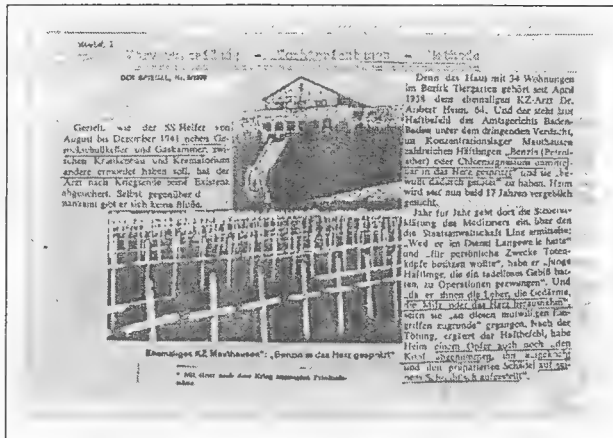 DER SPIEGEL, Nr. 6/1979
Gezielt, wie der SS-Helfer von
August bis Dezember 1941 neben Ge-
nickschußkeller und Gaskammer, zwi-
schen Krankenbau und Krematorium
andere ermordet haben soll, hat der
Arzt nach Kriegsende seine Existenz
abgesichert. Selbst gegenüber d
nanzamt gibt er sich keine Blöße.
Ehemaliges KZ Mauthausen*: „Benzin in das Herz gespritzt"
* Mit nach dem Krieg
Denn das Haus mit 34 Wohnungen
im Bezirk Tiergarten gehört seit April
1958 dem ehemaligen KZ-Arzt Dr.
Aribert Heim, 64. Und der steht laut
Haftbefehl des Amtsgerichts Baden-
Baden unter dem dringenden Verdacht,
im Konzentrationslager Mauthausen
zahlreichen Häftlingen „Benzin
oder Chlormagnesium
in das Herz gespritzt" und sie „be-
wußt dadurch getötet" zu haben. Heim
wird seit nun bald 17 Jahren vergeblich
gesucht.
Jahr für Jahr geht dort die Steuerer-
klärung des Mediziners ein, über den
die Staatsanwaltschaft Linz ermittelte:
„Weil er im Dienst Langeweile hatte"
und „für persönliche Zwecke Toten-
köpfe besitzen wollte", habe er „junge
Häftlinge, die ein tadelloses Gebiß hat-
ten, zu Operationen gezwungen". Und
„da er ihnen die Leber, die Gedärme,
die Milz oder das Herz herausnahm",
seien sie „an diesen mutwilligen Ein-
griffen zugrunde" gegangen. Nach der
Tötung, ergänzt der Haftbefehl, habe
Heim einem Opfer auch noch „den
Kopf abgenommen, ihn ausgekocht
und den präparierten Schädel auf sei-
nem Schreibtisch aufgestellt".